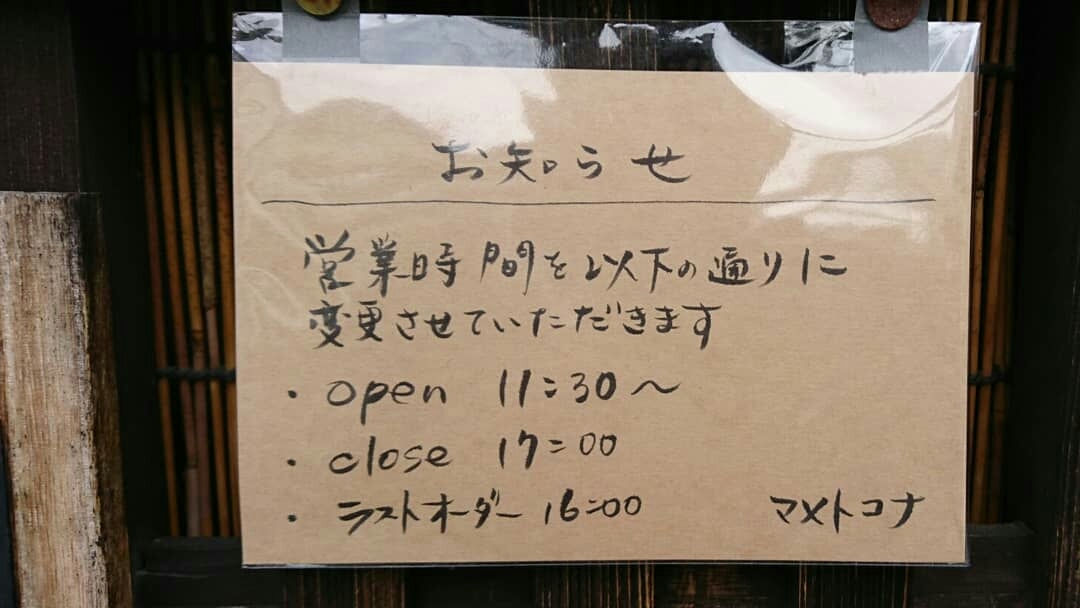 お知らせ
営業時間を以下の通りに
変更させていただきます
・open 11:30〜
・close 17:00
・ラストオーダー 16:00 マメトコナ